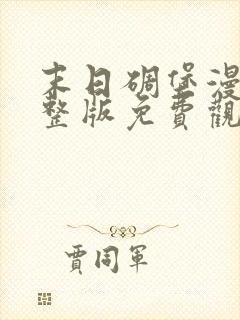 末日碉堡漫
整版免費觀
賈同軍